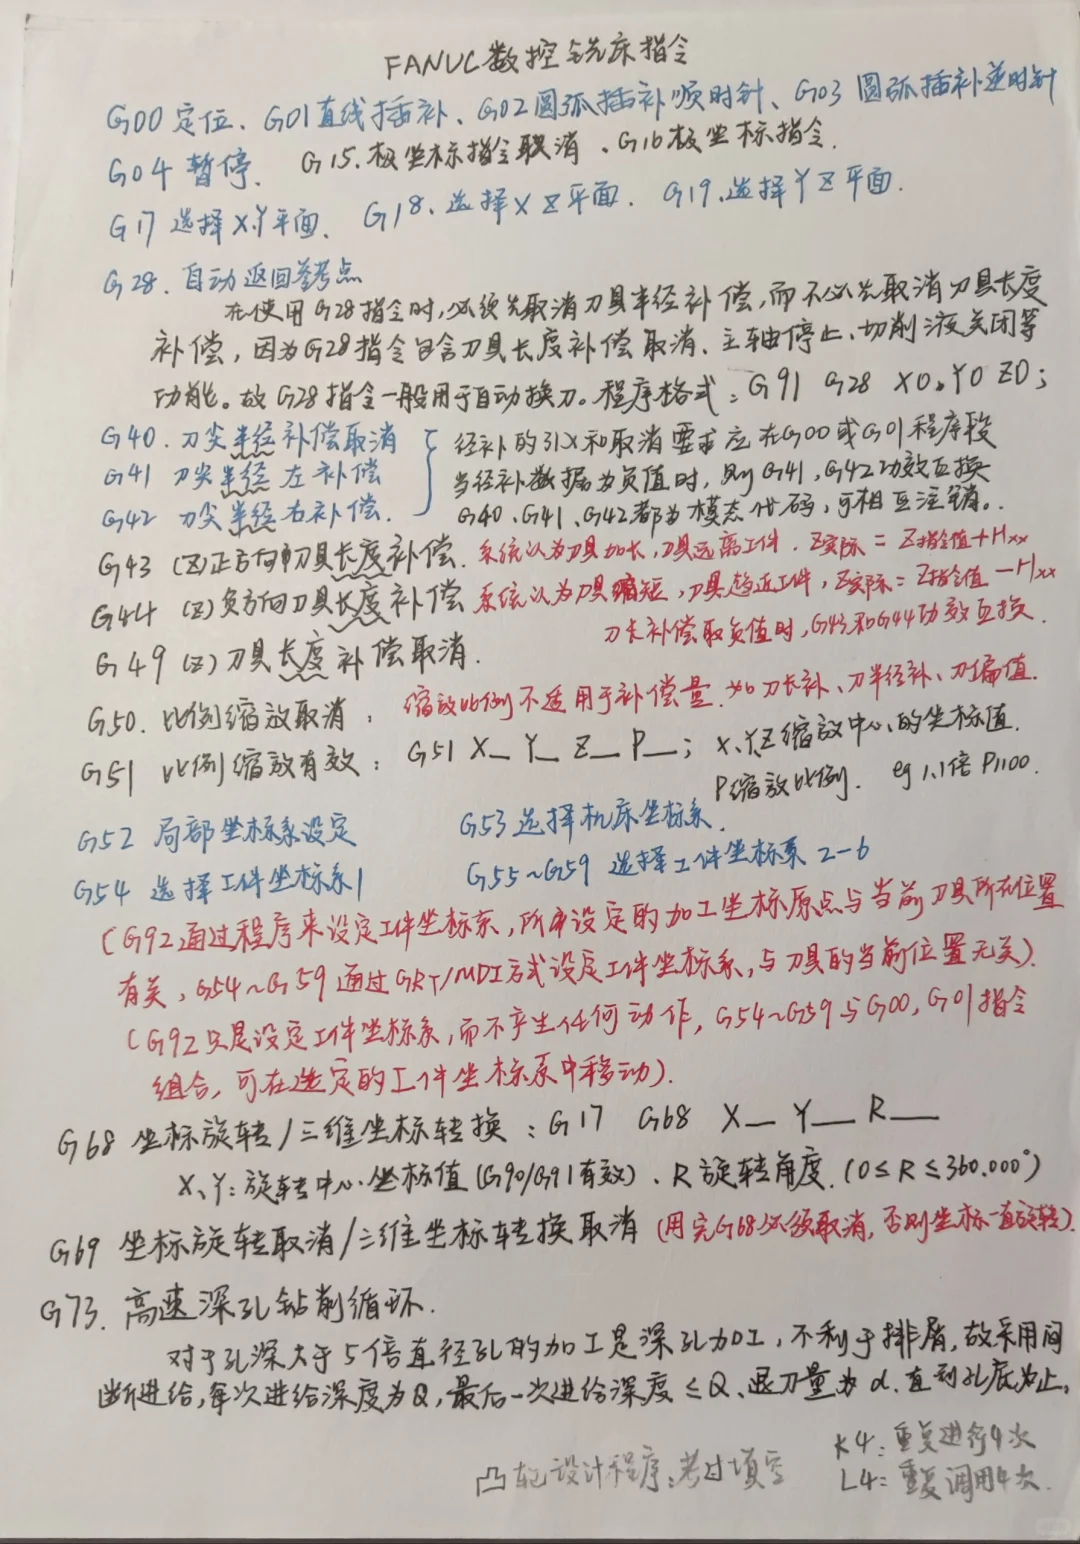 FANUC数控铣床指令
G00 定位、G01 直线插补、G02 圆弧插补顺时针、G03 圆弧插补逆时针
G04 暂停. G15.极坐标指令取消、G16极坐标指令.
G17 选择X.Y平面. G18、选择XZ平面. G19、选择YZ平面.
G28.自动返回参考点
在使用G28指令时,必须先取消刀具半径补偿,而不必先取消刀具长度
补偿,因为G28指令包含刀具长度补偿取消、主轴停止、切削液关闭等
功能。故G28指令一般用于自动换刀。程序格式:G91 G28 X0.Y0 Z0;
G40.刀尖半径补偿取消
G41 刀尖半径左补偿
G42 刀尖半径右补偿.
径补的引入和取消要求应在G00或G01程序段
当径补数据为负值时,则G41、G42功效互换
G40、G41、G42都为模态代码,可相互注销。
G43 (Z)正方向刀具长度补偿. 系统认为刀具加长,刀具远离工件. Z实际=Z指令值+Hxx
G44 (Z)负方向刀具长度补偿 系统认为刀具缩短,刀具趋近工件,Z实际=Z指令值-Hxx
刀长补偿取负值时,G43和G44功效互换.
G49 (Z)刀具长度补偿取消.
G50.比例缩放取消: 缩放比例不适用于补偿量.如刀长补、刀半径补、刀偏值.
G51 比例缩放有效: G51 X_ Y_ Z_ P_; X、Y、Z缩放中心的坐标值.
P缩放比例. eg 1.1倍 P1100.
G52 局部坐标系设定 G53选择机床坐标系.
G54 选择工件坐标系1 G55~G59 选择工件坐标系2-6
(G92通过程序来设定工件坐标系,所设定的加工坐标原点与当前刀具所在位置
有关,G54~G59通过CRT/MDI方式设定工件坐标系,与刀具的当前位置无关).
(G92只是设定工件坐标系,而不产生任何动作,G54~G59与G00,G01指令
组合,可在选定的工件坐标系中移动).
G68 坐标旋转/三维坐标转换:G17 G68 X_ Y_ R_
X、Y:旋转中心坐标值(G90/G91有效)、R旋转角度.(0≤R≤360.000°)
G69 坐标旋转取消/三维坐标转换取消(用完G68必须取消,否则坐标一直旋转).
G73.高速深孔钻削循环.
对于孔深大于5倍直径孔的加工是深孔加工,不利于排屑,故采用间
断进给,每次进给深度为Q,最后一次进给深度≤Q、退刀量为d.直到孔底为止.
K4:重复进行4次
凸轮设计程序:考过填空 L4:重复调用4次.